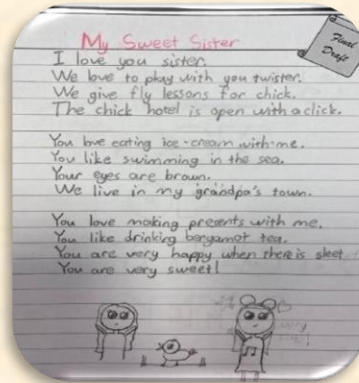 My Sweet Sister
Final
Draft
I love you sister.
We love to play with you twister.
We give fly lessons for chick.
The chick hotel is open with a click.
You love eating ice-cream with me.
You like swimming in the sea.
Your eyes are brown.
We live in my grandpa's town.
You love making presents with me.
You like drinking bergamot tea.
You are very happy when there is sleet
You are very sweet!